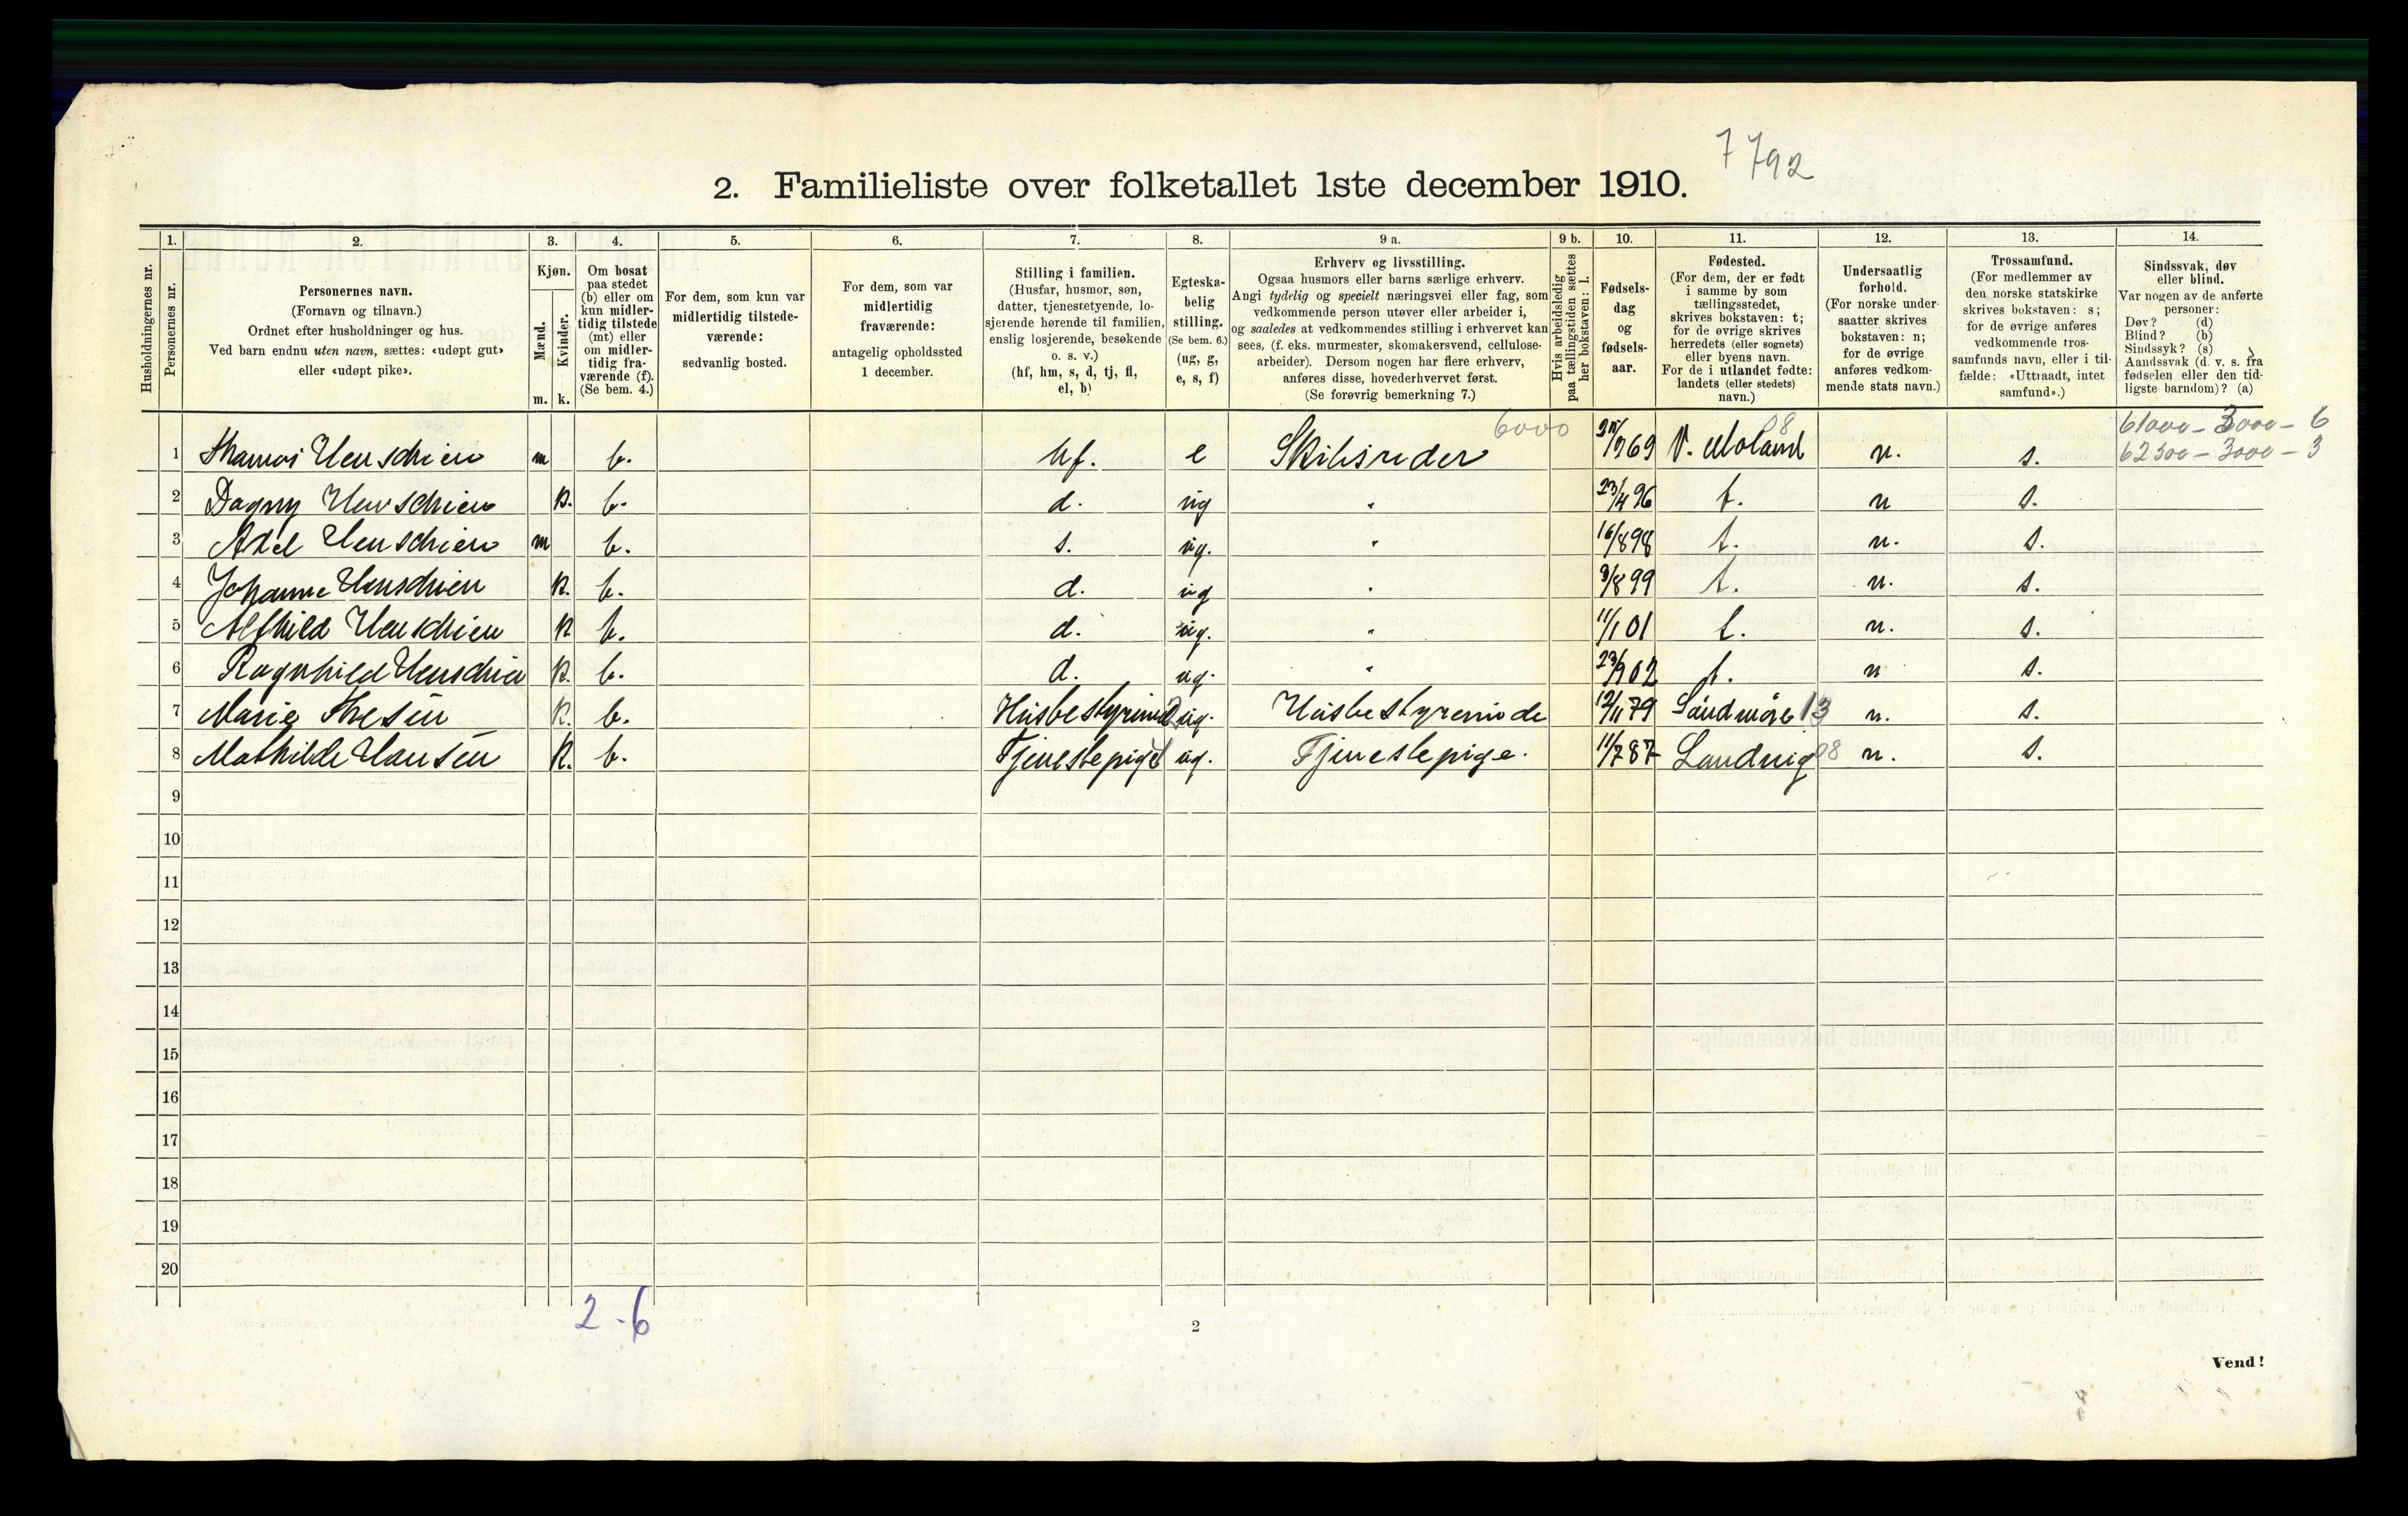 7792
2. Familieliste over folketallet 1ste december 1910.
Husholdningernes nr.
1.
Personernes nr.
2.
Personernes navn.
(Fornavn og tilnavn.)
Ordnet efter husholdninger og hus.
Ved barn endnu uten navn, sættes: «udøpt gut»
eller «udøpt pike».
3.
Kjøn.
Mænd.
Kvinder.
m. k.
4.
Om bosat
paa stedet
(b) eller om
kun midler-
tidig tilstede
(mt) eller
om midler-
tidig fra-
værende (f).
(Se bem. 4.)
5.
For dem, som kun var
midlertidig tilstede-
værende:
sedvanlig bosted.
6.
For dem, som var
midlertidig
fraværende:
antagelig opholdssted
1 december.
7.
Stilling i familien.
(Husfar, husmor, søn,
datter, tjenestetyende, lo-
sjerende hørende til familien,
enslig losjerende, besøkende
o. s. v.)
(hf, hm, s, d, tj, fl,
el, b)
8.
Egteska-
belig
stilling.
(Se bem. 6.)
(ug, g,
e, s, f)
9 a.
Erhverv og livsstilling.
Ogsaa husmors eller barns særlige erhverv.
Angi tydelig og specielt næringsvei eller fag, som
vedkommende person utøver eller arbeider i,
og saaledes at vedkommendes stilling i erhvervet kan
sees, (f. eks. murmester, skomakersvend, cellulose-
arbeider). Dersom nogen har flere erhverv,
anføres disse, hovederhvervet først.
(Se forøvrig bemerkning 7.)
9 b.
Hvis arbeidsledig
paa tællingstiden sættes
her bokstaven: l.
10.
Fødsels-
dag
og
fødsels-
aar.
11.
Fødested.
(For dem, der er født
i samme by som
tællingsstedet,
skrives bokstaven: t;
for de øvrige skrives
herredets (eller sognets)
eller byens navn.
For de i utlandet fødte:
landets (eller stedets)
navn.)
12.
Undersaatlig
forhold.
(For norske under-
saatter skrives
bokstaven: n;
for de øvrige
anføres vedkom-
mende stats navn.)
13.
Trossamfund.
(For medlemmer av
den norske statskirke
skrives bokstaven: s;
for de øvrige anføres
vedkommende tros-
samfunds navn, eller i til-
fælde: «Uttraadt, intet
samfund».)
14.
Sindssvak, døv
eller blind.
Var nogen av de anførte
personer:
Døv? (d)
Blind? (b)
Sindssyk? (s)
Aandssvak (d. v. s. fra
fødselen eller den tid-
ligste barndom)? (a)
6000 08 61000 - 3000 - 6
1 Thomas Henschien m b. hf. e Skibsreder 69 V. Moland n. s. 62300 - 3000 - 3
2 Dagny Henschien k. b. d. ug " 23/4 96 t. n s.
3 Axel Henschien m b. s. ug. " 16/8 98 t. n. s.
4 Johanne Henschien k. b. d. ug " 9/8 99 t. n. s.
5 Alfhild Henschien k b. d. ug. " 11/1 01 t. n. s.
6 Ragnhild Henschien k. b. d. ug. " 23/9 02 t. n s.
7 Marie k. b. Husbestyrinde ug. Husbestyrerinde 12/11 79 Søndmøre 13 n. s.
8 Mathilde Hansen k. b. Tjenestepige ug. Tjenestepige. 11/7 87 Landvig 08 n. s.
9
10
11
12
13
14
15
16
17
18
19
20
2 - 6
2
Vend!